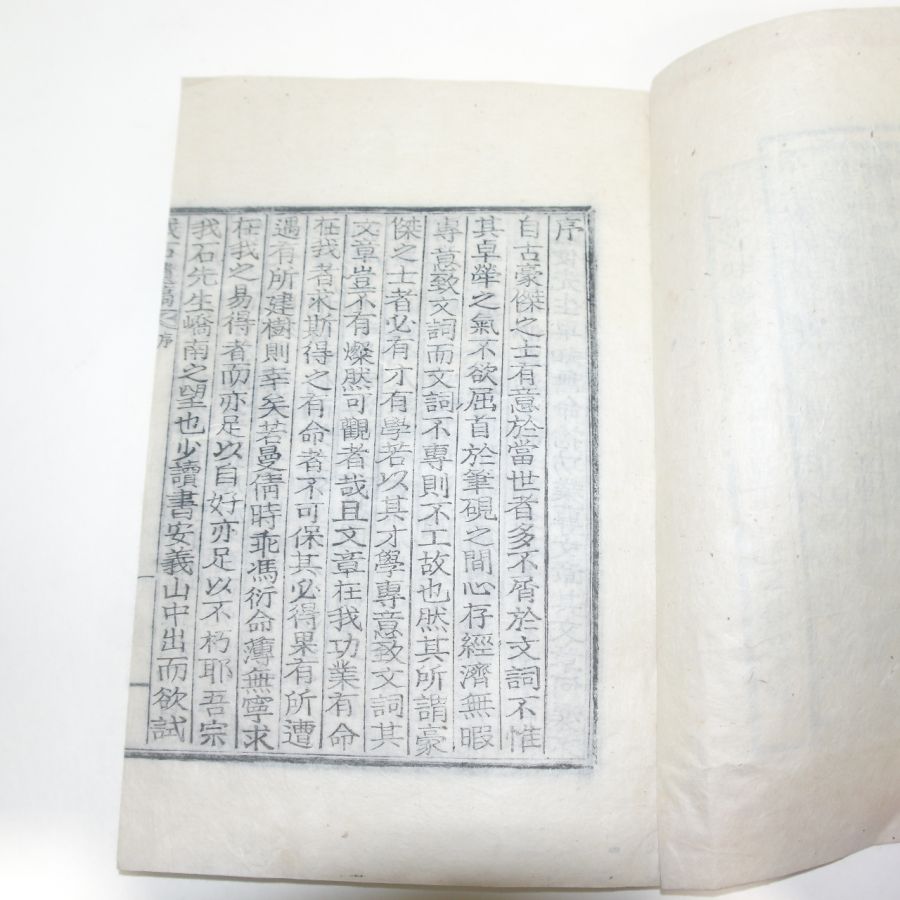 序
自古豪傑之士有意於當世者多不屑於文詞不惟
其卓犖之氣不欲屈首於筆硯之間心存經濟無暇
專意致文詞而文詞不專則不工故也然其所謂豪
傑之士者必有才有學若以其才學專意致文詞其
文章豈不有燦然可觀者哉且文章在我功業有命
在我者求斯得之有命者不可保其必得果有所遭
遇有所建樹則幸矣若曼倩時乖馮衍命薄無寧求
在我之易得者而亦足以自好亦足以不朽耶吾宗
我石先生嶠南之望也少讀書安義山中出而欲試
我石遺稿之序